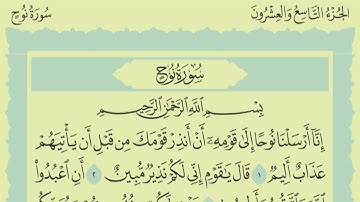 الجُزْءُ التَّاسِعُ وَالعِشْرُونَ
سُورَةُ نُوحٍ
سُورَةُ نُوحٍ
بِسْمِ اللَّهِ الرَّحْمَٰنِ الرَّحِيمِ
إِنَّآ أَرْسَلْنَا نُوحًا إِلَىٰ قَوْمِهِۦٓ أَنْ أَنذِرْ قَوْمَكَ مِن قَبْلِ أَن يَأْتِيَهُمْ
عَذَابٌ أَلِيمٌ ١ قَالَ يَٰقَوْمِ إِنِّي لَكُمْ نَذِيرٌ مُّبِينٌ ٢ أَنِ ٱعْبُدُوا۟